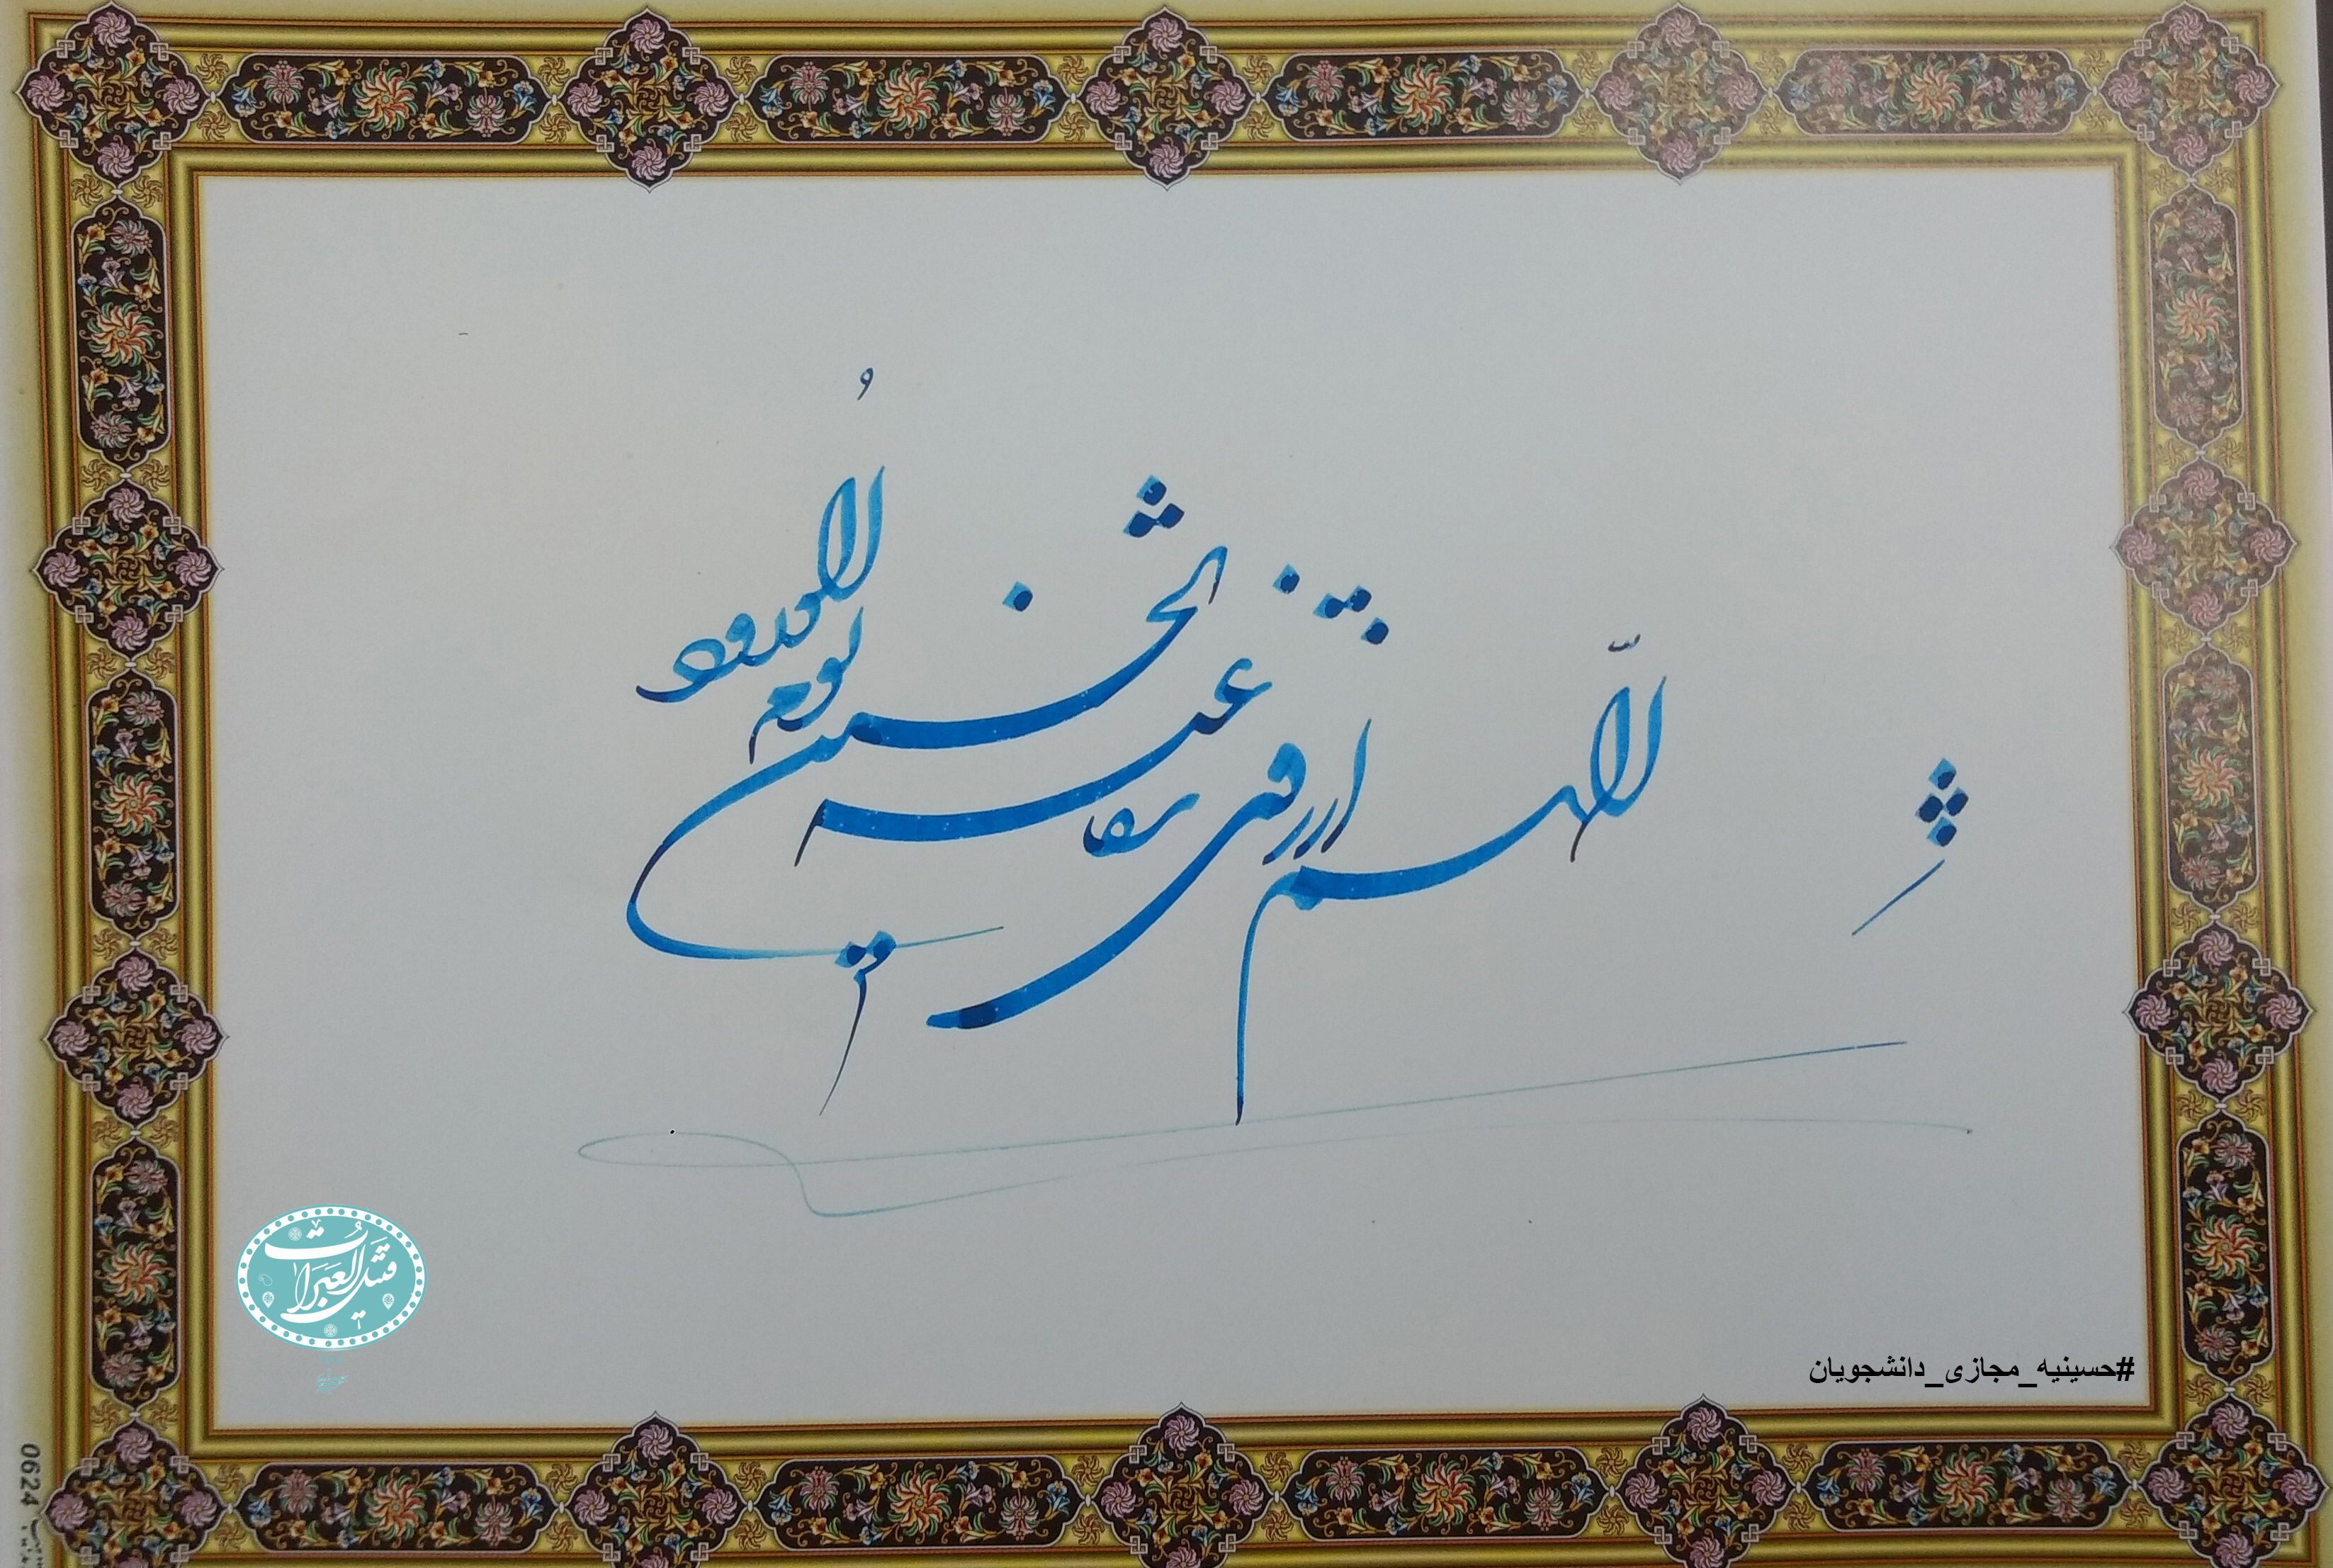 اللهم ارزقنی شفاعة الحسین یوم الورود
قتیل العبرات
#حسینیه_مجازی_دانشجویان
0624